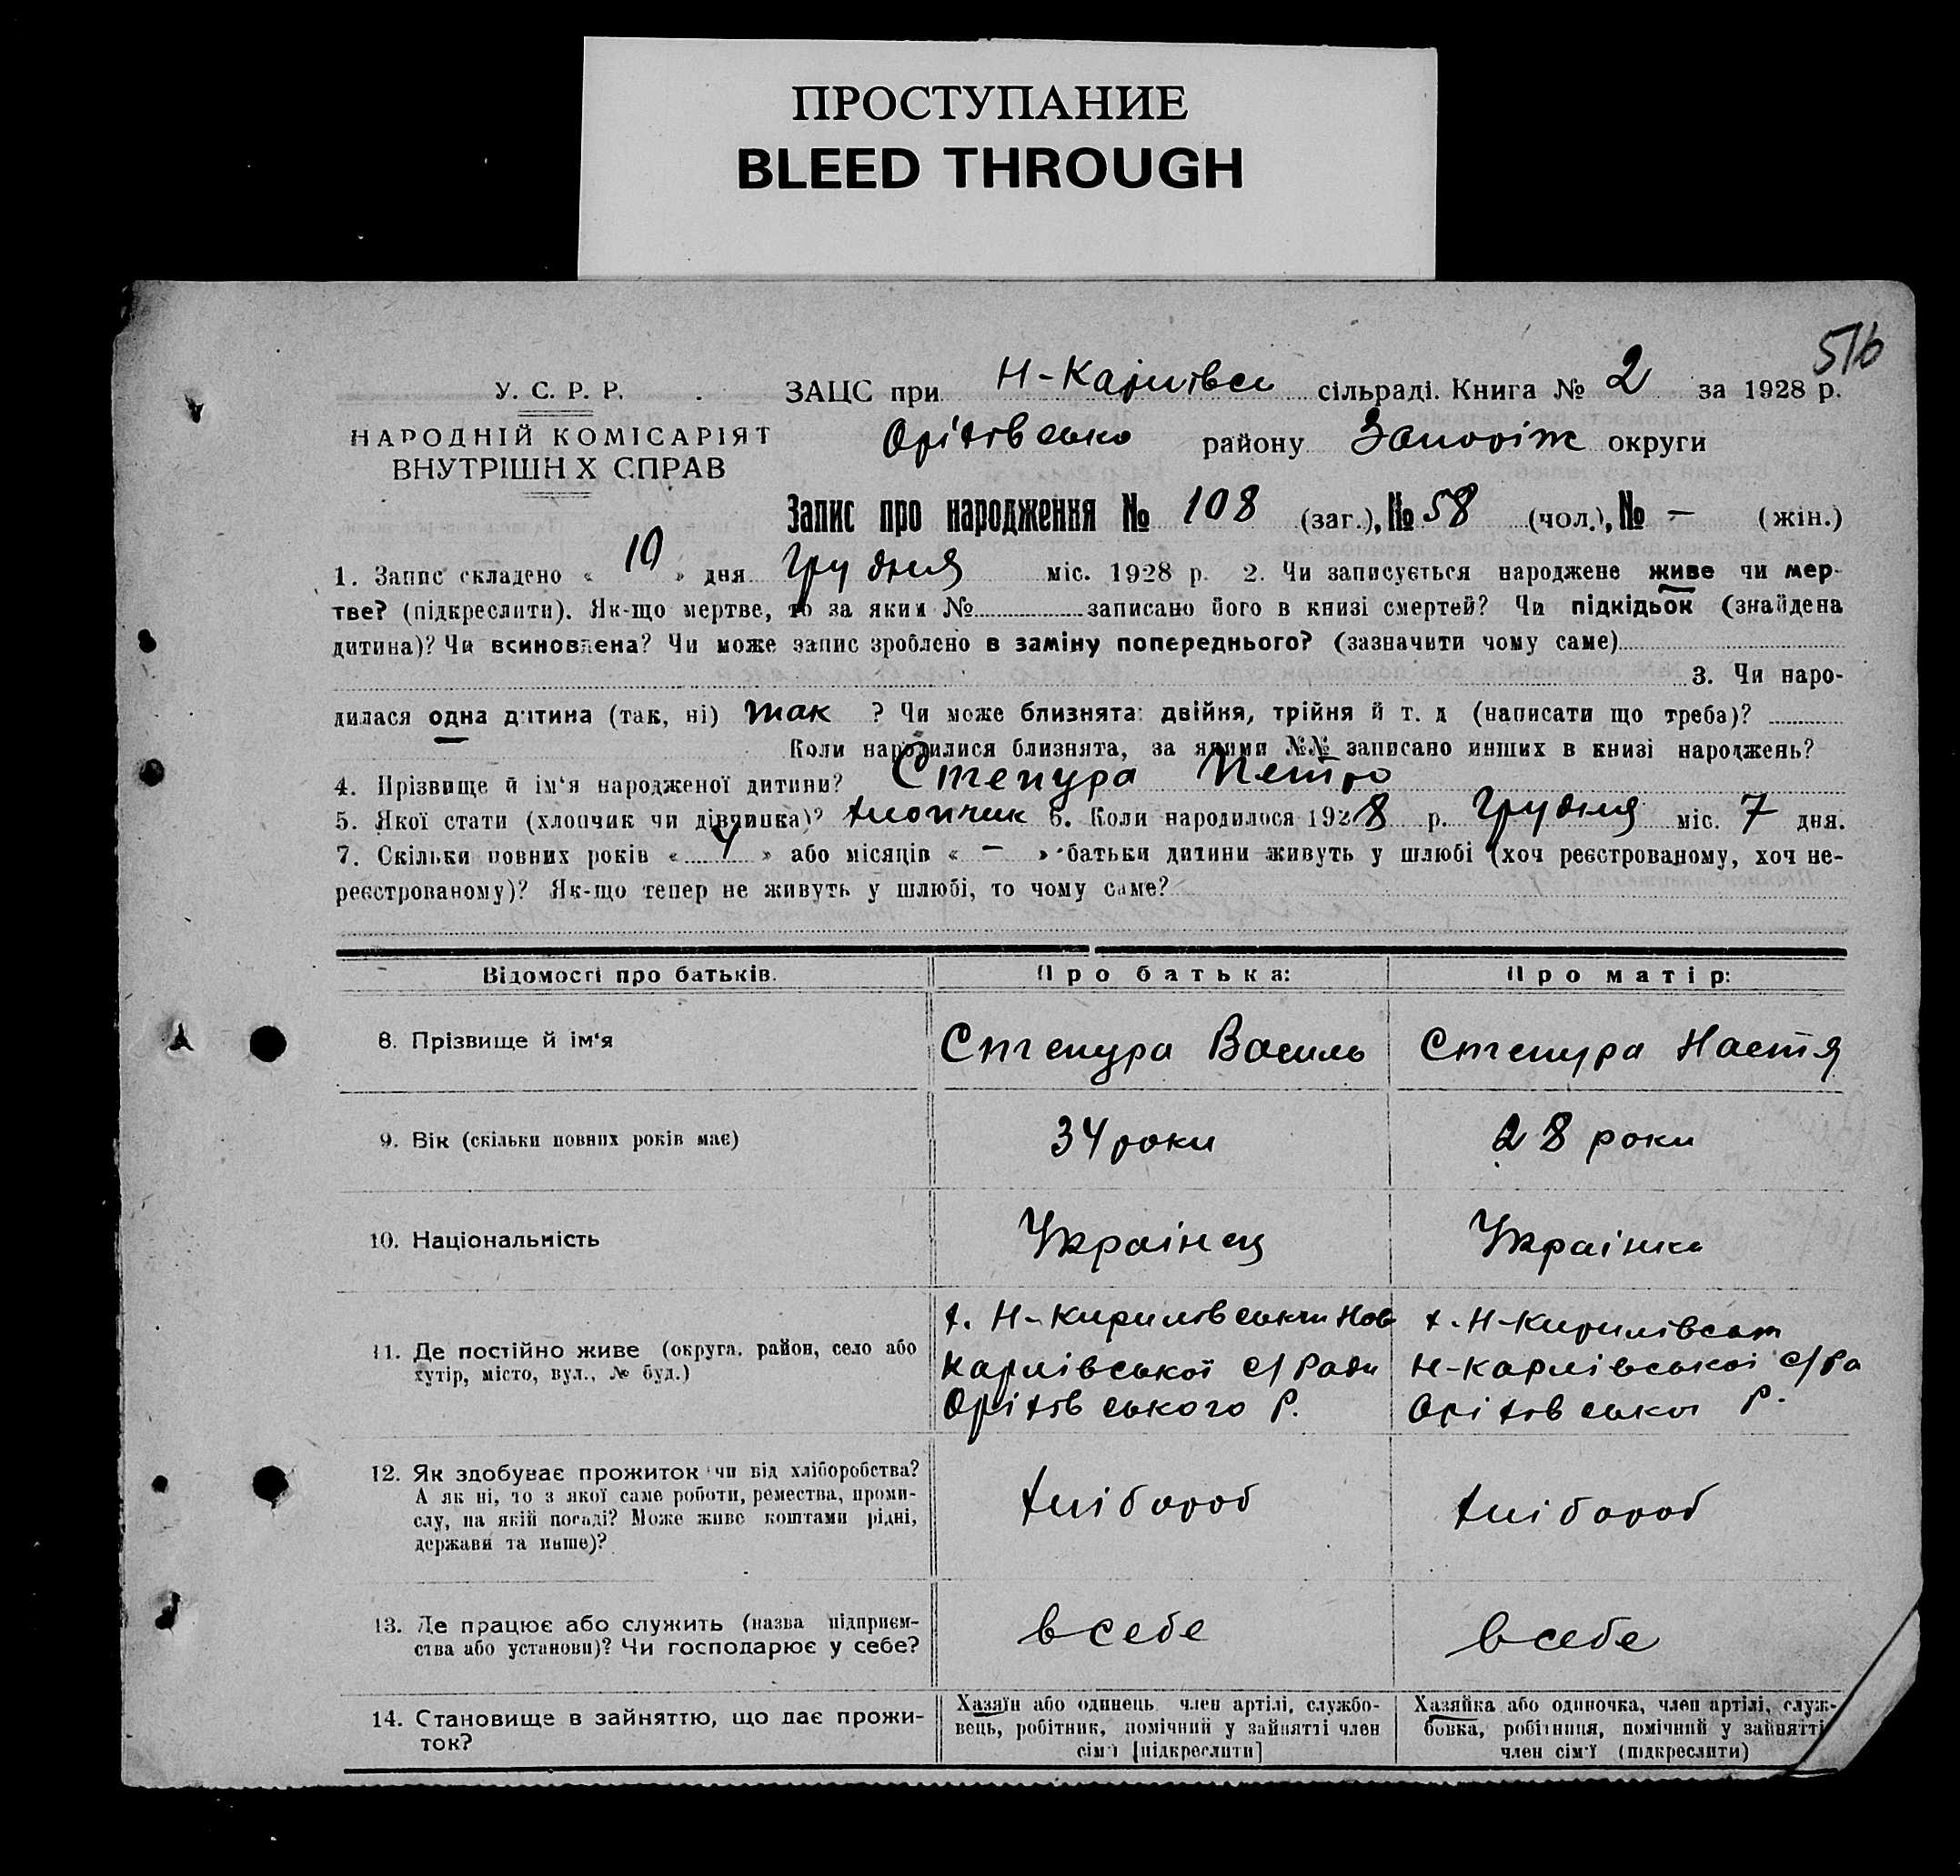 ПРОСТУПАНИЕ
BLEED THROUGH
516
У. С. Р. Р.
НАРОДНІЙ КОМІСАРІЯТ
ВНУТРІШН Х СПРАВ
ЗАЦС при Н-Карлівськ сільраді. Книга № 2 за 1928 р.
Оріхівсько району Запоріж округи
Запис про народження № 108 (заг.), № 58 (чол.), № — (жін.)
1. Запис складено « 10 » дня Грудня міс. 1928 р. 2. Чи записується народжене живе чи мер-
тве? (підкреслити). Як-що мертве, то за яким № записано його в книзі смертей? Чи підкідьок (знайдена
дитина)? Чи всиновлена? Чи може запис зроблено в заміну попереднього? (зазначити чому саме)
3. Чи наро-
дилася одна дитина (так, ні) так ? Чи може близнята: двійня, трійня й т. д (написати що треба)?
Коли народилися близнята, за якими №№ записано инших в книзі народжень?
4. Прізвище й ім‘я народженої дитини? Степура Петро
5. Якої стати (хлопчик чи дівчинка)? хлопчик 6. Коли народилося 1928 р. Грудня міс. 7 дня.
7. Скільки повних років « 4 » або місяців « — » батьки дитини живуть у шлюбі (хоч реєстрованому, хоч не-
реєстрованому)? Як-що тепер не живуть у шлюбі, то чому саме?
Відомості про батьків. Про батька: Про матір:
8. Прізвище й ім‘я Степура Василь Степура Настя
9. Вік (скільки повних років має) 34 роки 28 роки
10. Національність Українец Українка
11. Де постійно живе (округа, район, село або
хутір, місто, вул., № буд.)
х. Н-Кирилівськи Нов
Карлівської с/Ради
Оріхівського Р.
х. Н-Кирилівськ
Н-Карлівської с/Ра
Оріхівсько Р.
12. Як здобуває прожиток чи від хліборобства?
А як ні, то з якої саме роботи, ремества, проми-
слу, на якій посаді? Може живе коштами рідні,
держави та инше)?
хлібороб хлібороб
13. Де працює або служить (назва підприєм-
ства або установи)? Чи господарює у себе?
в себе в себе
14. Становище в зайняттю, що дає прожи-
ток?
Хазяїн або одинець член артілі, службо-
вець, робітник, помічний у зайнятті член
сім‘ї [підкреслити]
Хазяйка або одиночка, член артілі, служ-
бовка, робітниця, помічний у зайнятті
член сім‘ї (підкреслити)